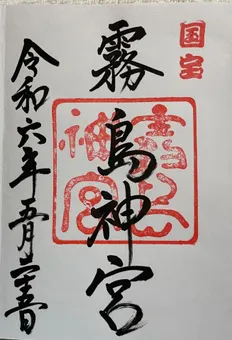 国宝
霧島神宮
霧島
神宮
令和六年五月